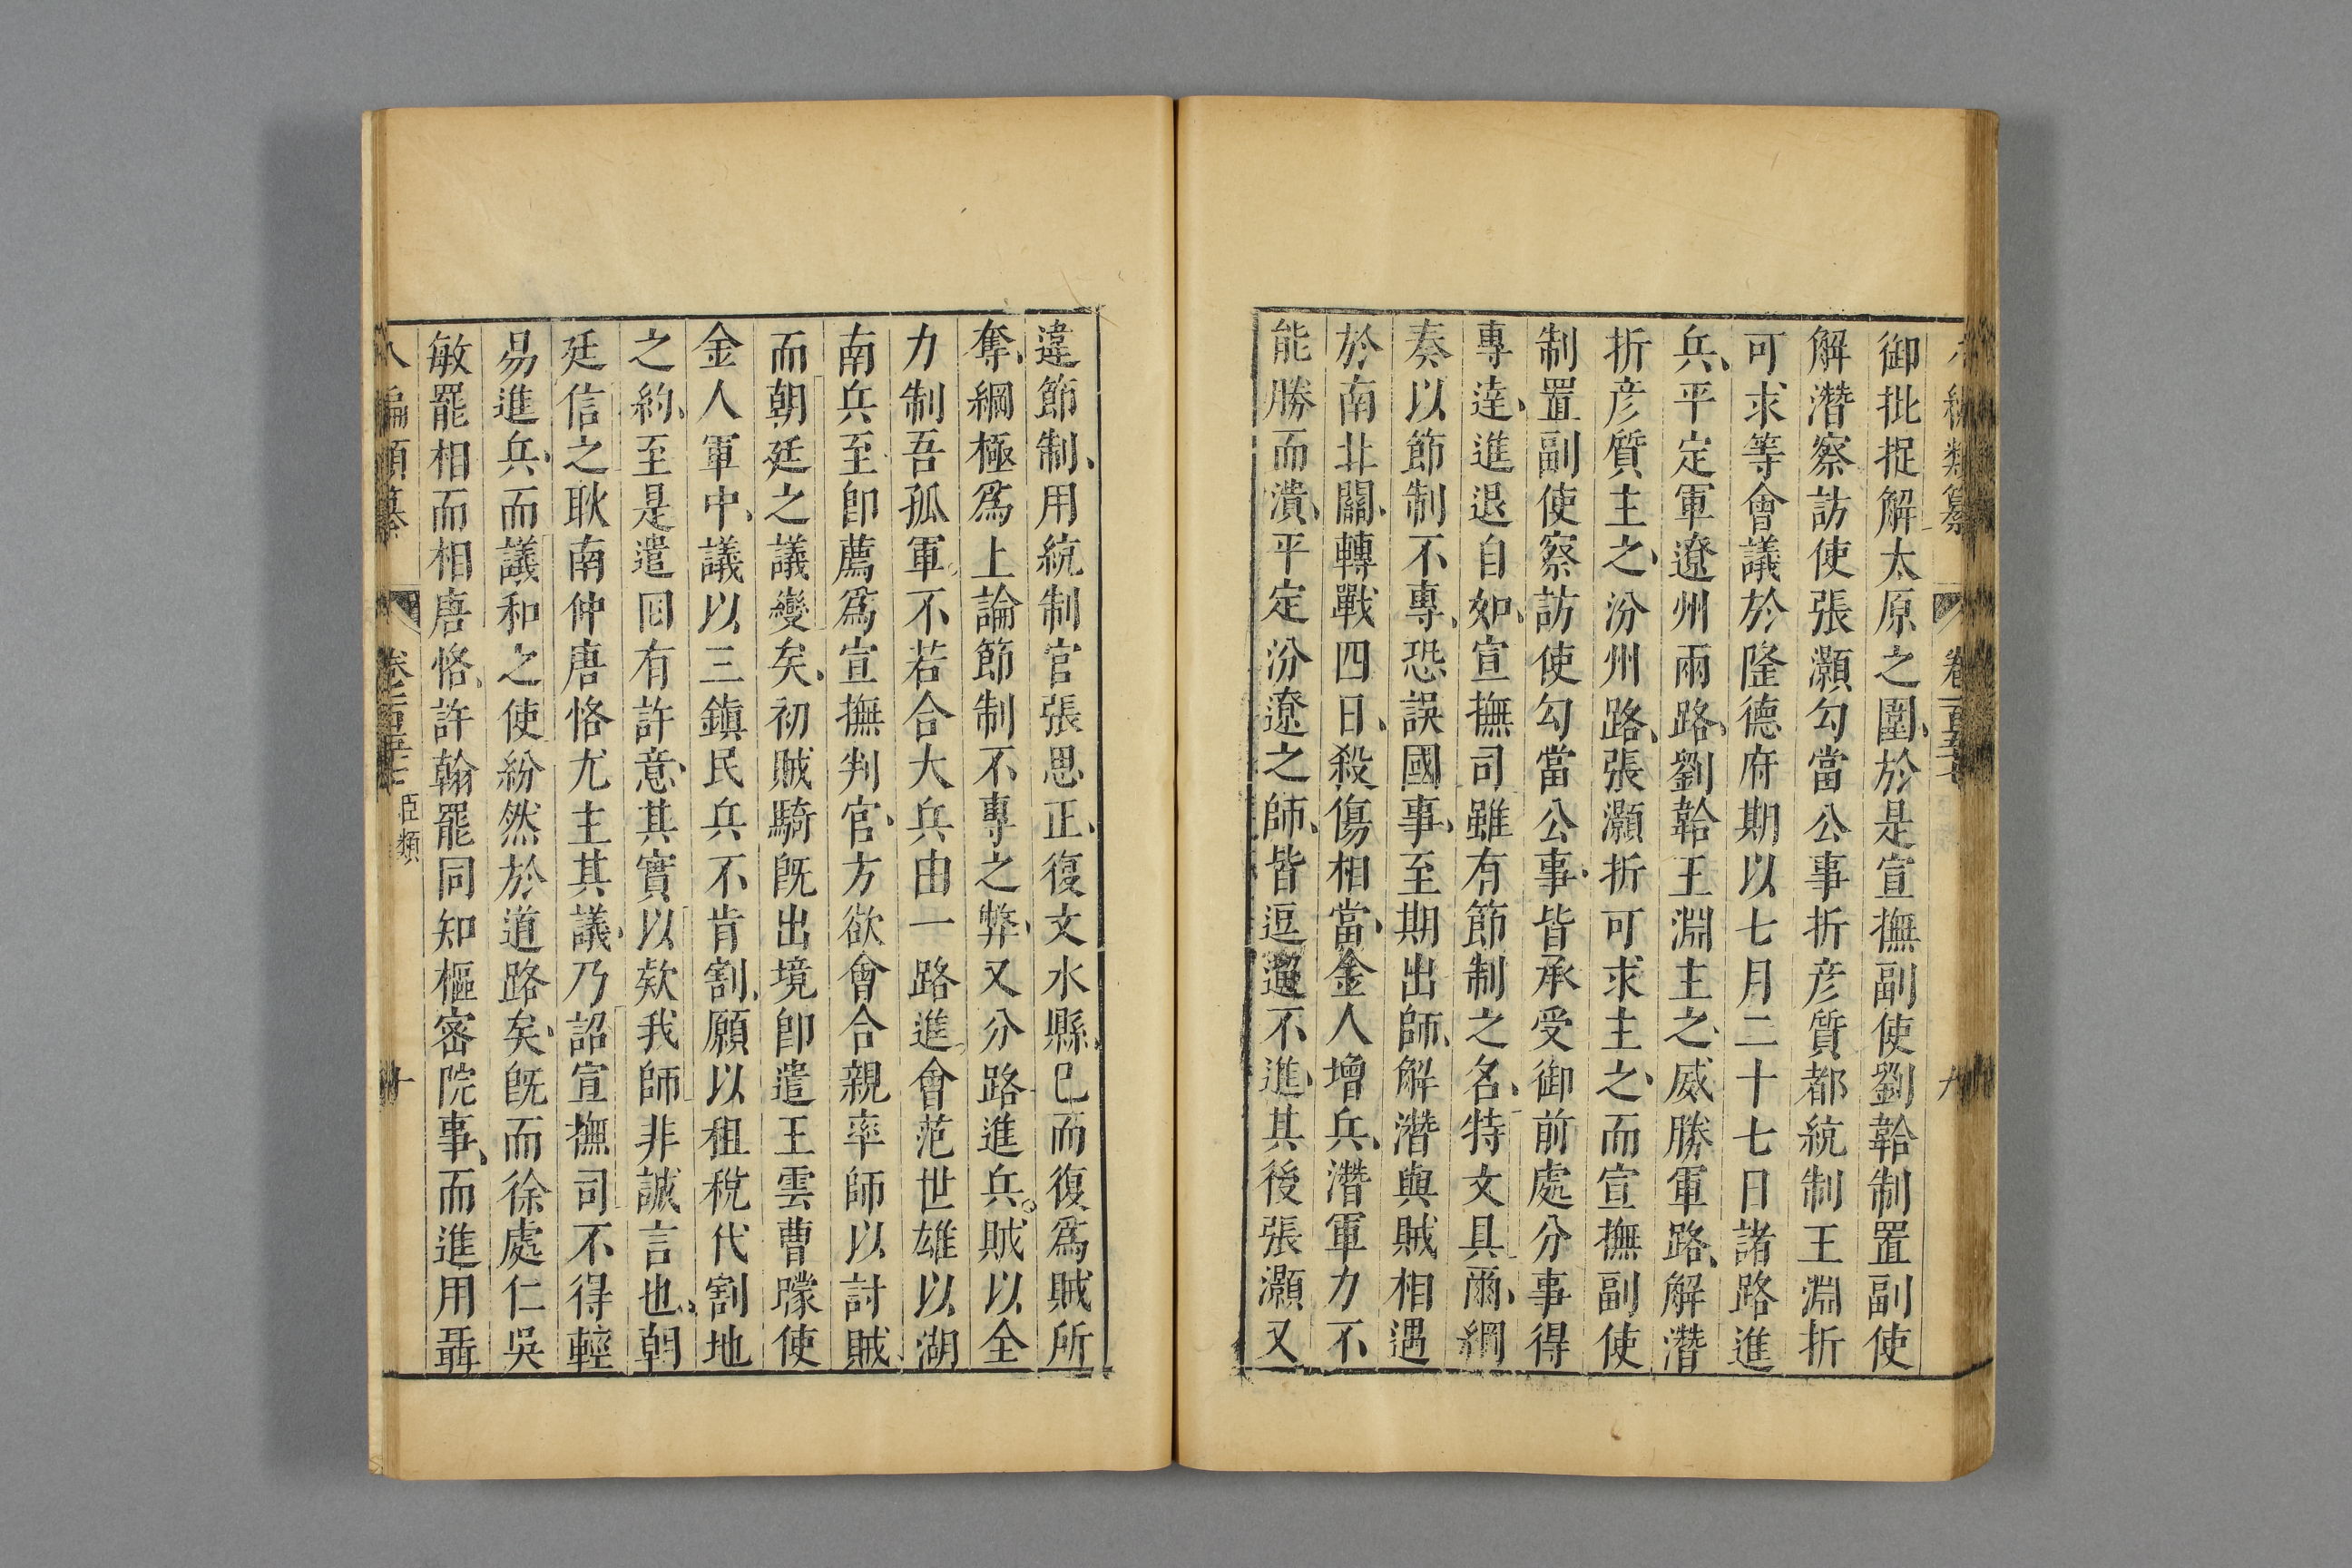 編類纂 卷一百五十七 九
御批捉解太原之圍、於是宣撫副使劉韐制置副使
解潛察訪使張灝勾當公事折彦質都統制王淵折
可求等會議於隆德府期以七月二十七日諸路進
兵、平定軍遼州兩路、劉韐王淵主之、威勝軍路、解潛
折彦質主之、汾州路、張灝折可求主之、而宣撫副使
制置副使察訪使勾當公事、皆承受御前處分事得
專達、進退自如、宣撫司雖有節制之名、特文具爾、綱
奏以節制不專、恐誤國事、至期出師、解潛與賊相遇
於南北關、轉戰四日、殺傷相當、金人增兵、潛軍力不
能勝而潰、平定汾遼之師、皆逗遛不進、其後張灝又
違節制、用統制官張思正、復文水縣、巳而復爲賊所
奪、綱極爲上論節制不專之弊、又分路進兵。賊以全
力制吾孤軍、不若合大兵由一路進、會范世雄以湖
南兵至卽薦爲宣撫判官、方欲會合親率師以討賊、
而朝廷之議變矣、初賊騎旣出境卽遣王雲曹矇使
金人軍中、議以三鎮民兵不肯割、願以租稅代割地
之約、至是遣囘有許意、其實以欵我師非誠言也、朝
廷信之耿南仲唐恪尤主其議、乃詔宣撫司不得輕
易進兵、而議和之使紛然於道路矣、旣而徐處仁吳
敏罷相而相唐恪、許翰罷同知樞密院事、而進用聶
八編類纂 卷一百五十七 臣類 十